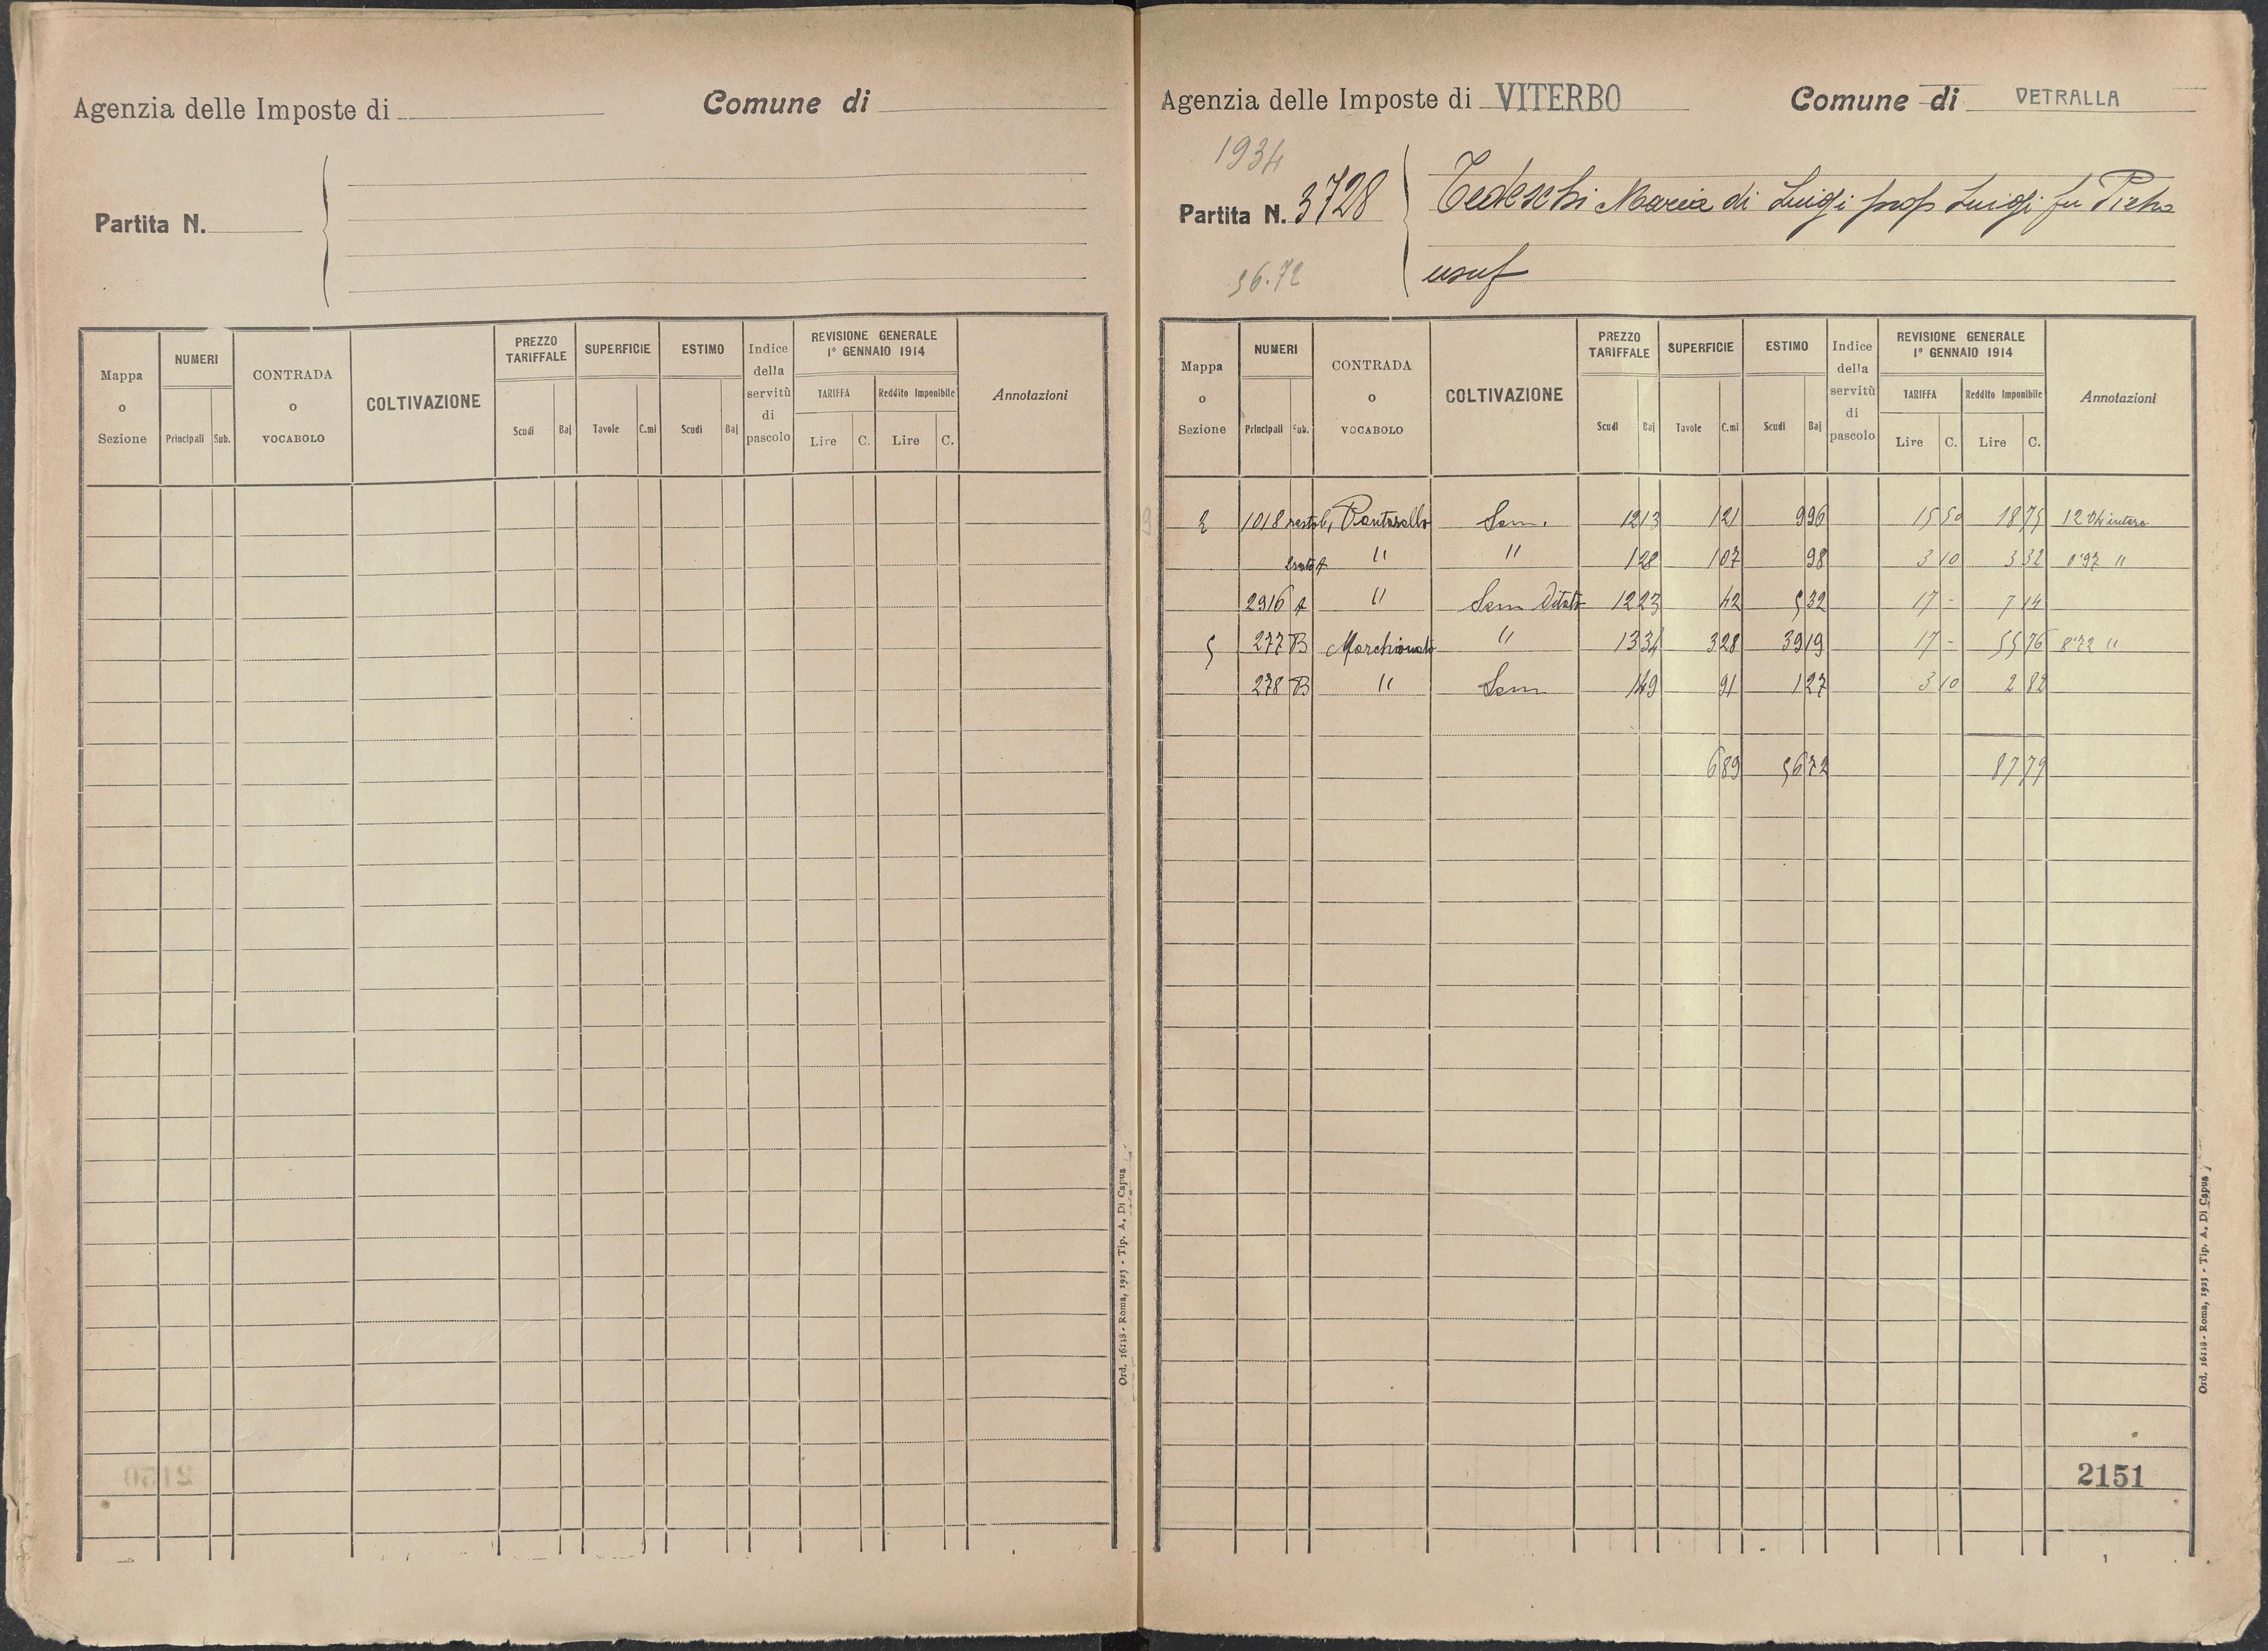 Agenzia delle Imposte di
Comune di
Partita N.
Mappa o Sezione
NUMERI
Principali Sub.
CONTRADA o VOCABOLO
COLTIVAZIONE
PREZZO TARIFFALE
Scudi Baj
SUPERFICIE
Tavole C.mi
ESTIMO
Scudi Baj
Indice della servitù di pascolo
REVISIONE GENERALE
1° GENNAIO 1914
TARIFFA
Lire C.
Reddito Imponibile
Lire C.
Annotazioni
Ord. 16118 - Roma, 1925 - Tip. A. Di Capua
Agenzia delle Imposte di VITERBO
Comune di VETRALLA
1934
Partita N. 3728
Tedeschi Maria di Luigi prop Luigi fu Pietro
usuf
56.72
Mappa o Sezione
NUMERI
Principali Sub.
CONTRADA o VOCABOLO
COLTIVAZIONE
PREZZO TARIFFALE
Scudi Baj
SUPERFICIE
Tavole C.mi
ESTIMO
Scudi Baj
Indice della servitù di pascolo
REVISIONE GENERALE
1° GENNAIO 1914
TARIFFA
Lire C.
Reddito Imponibile
Lire C.
Annotazioni
2 1018 Sem. 12 13 1 21 9 96 15 50 18 75 intera
" " 1 28 1 07 98 3 10 3 32 0'97 "
2916 A " Sem Vitato 12 23 42 5 32 17 - 7 14
5 277 B Marchionato " 13 34 3 28 39 19 17 - 55 76 8'72 "
278 B " Sem 1 49 91 1 27 3 10 2 82
6 89 56 72 87 79
2151
Ord. 16118 - Roma, 1925 - Tip. A. Di Capua